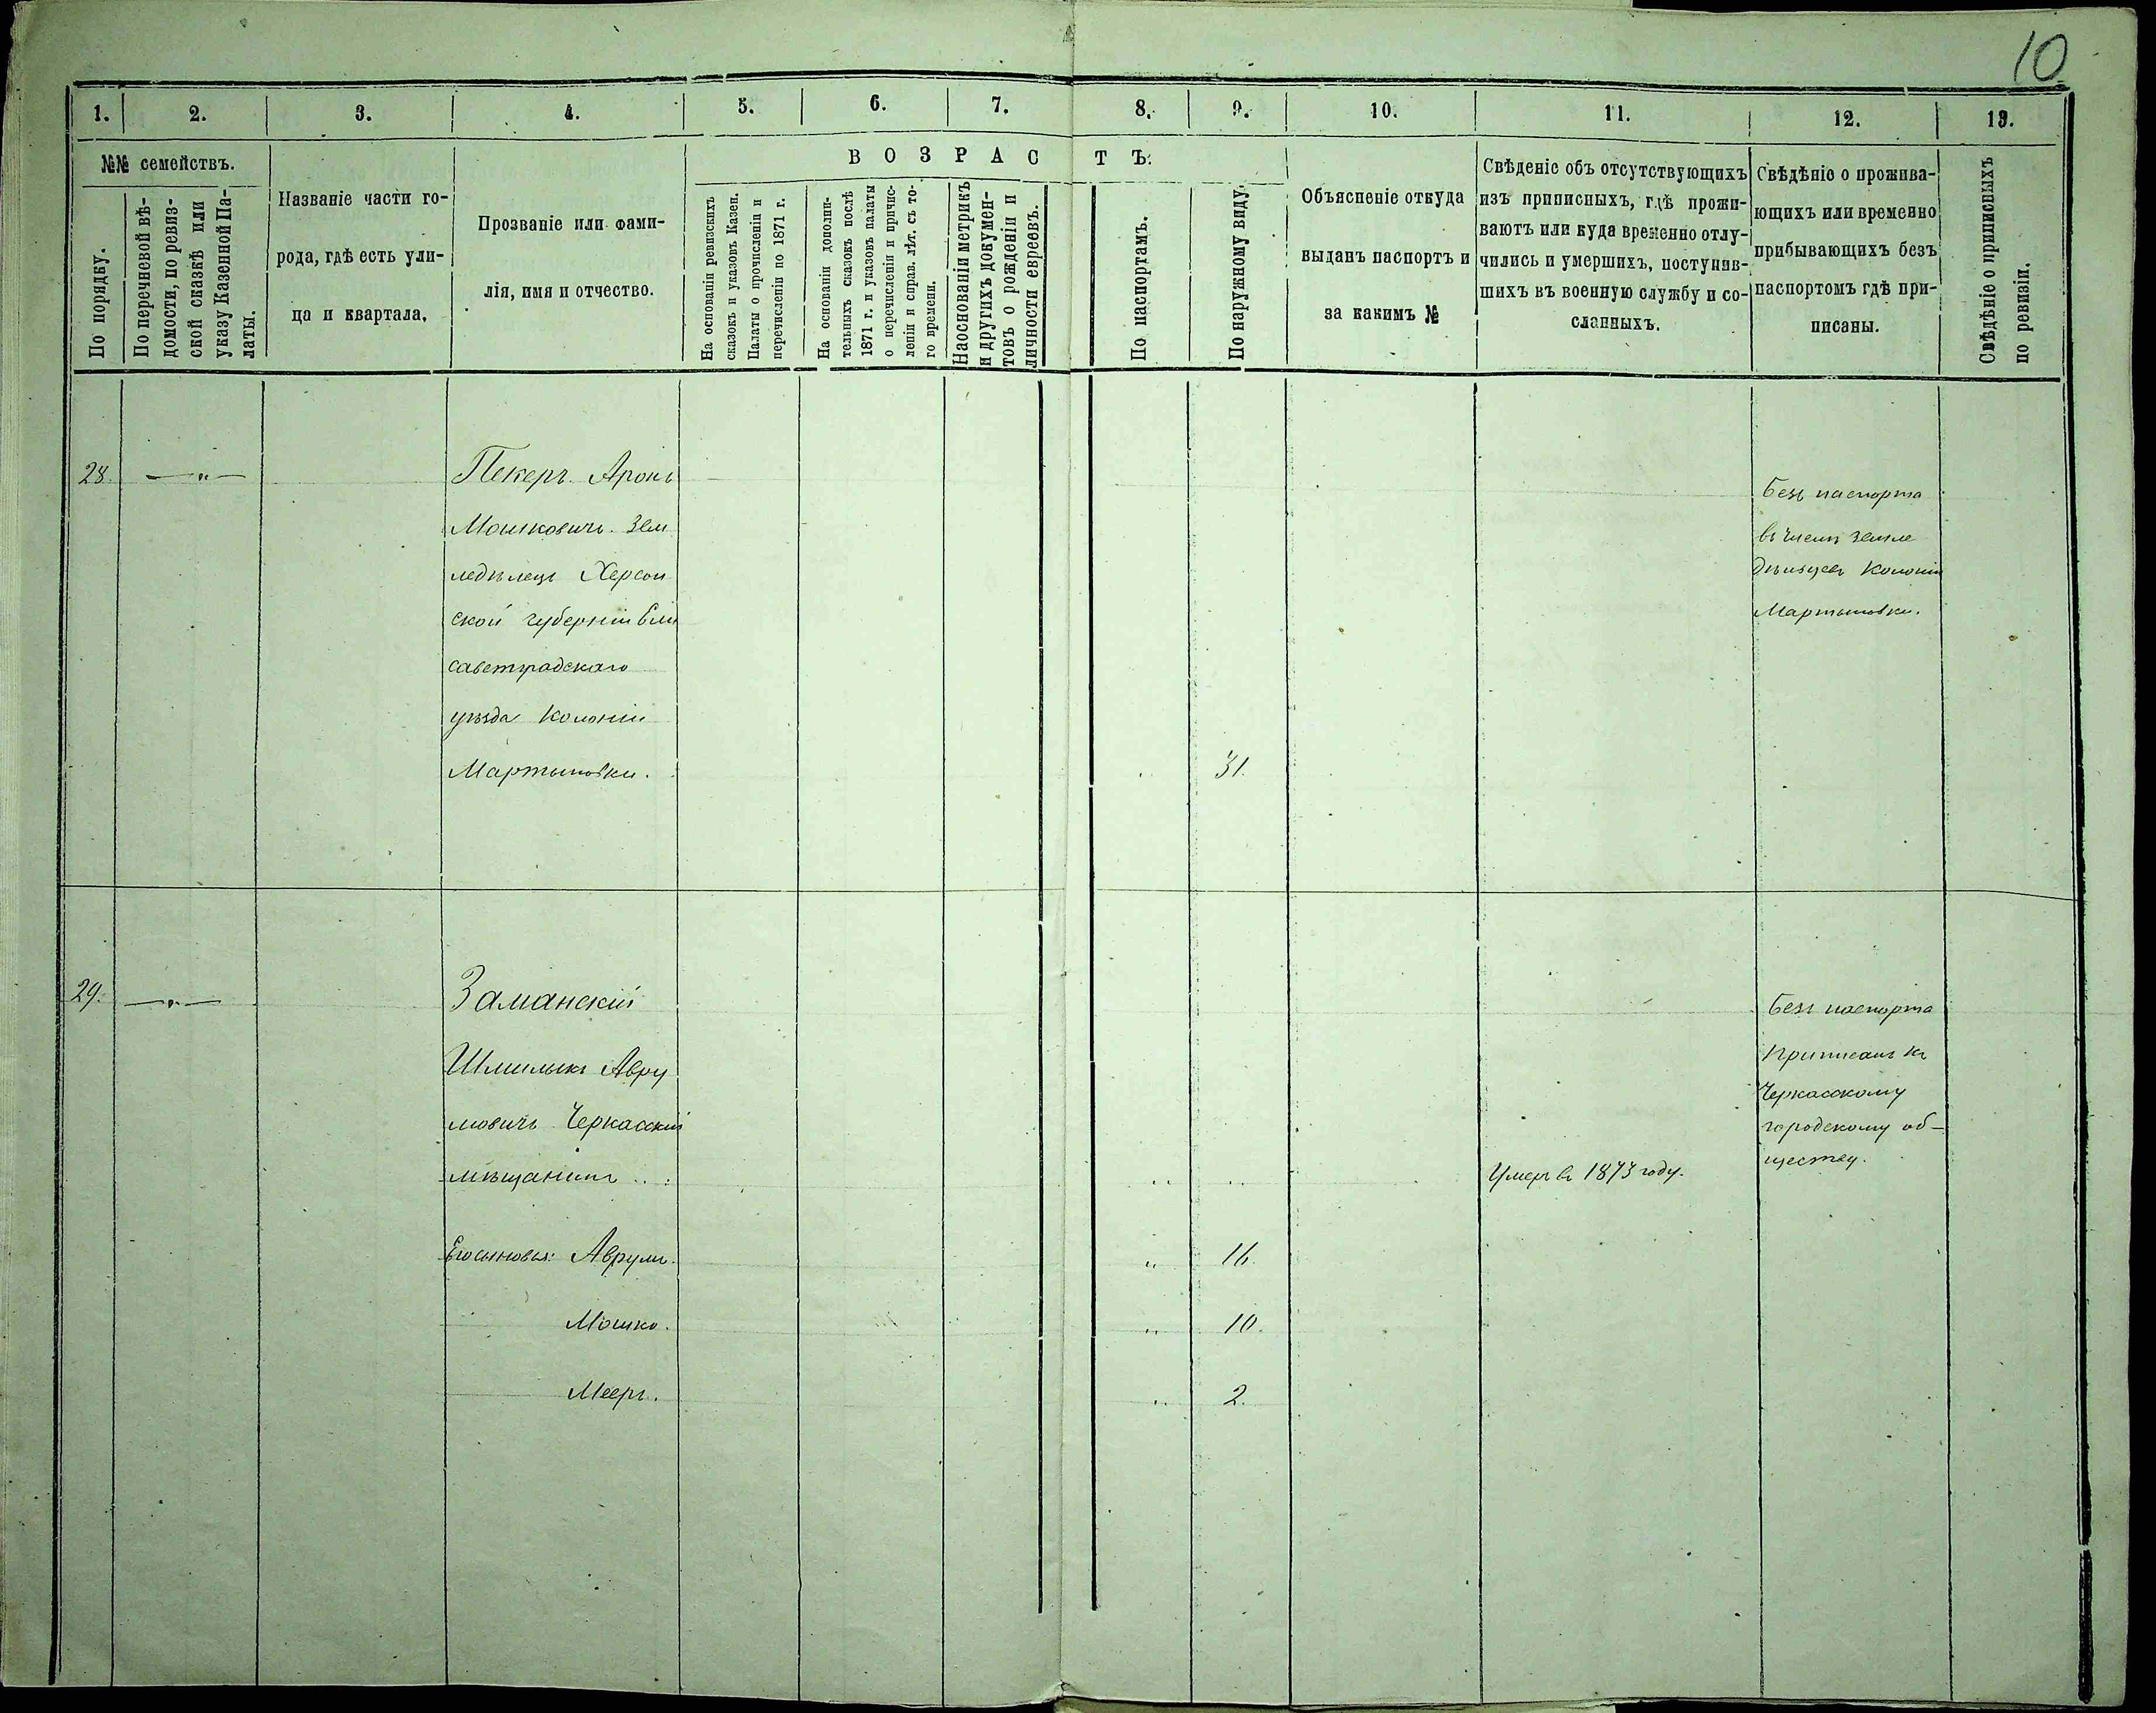 10
1. 2. 3. 4. 5. 6. 7. 8. 9. 10. 11. 12. 13.
№№ семействъ.
По порядку.
По перечневой вѣ-
домости, по ревиз-
ской сказкѣ или
указу Казенной Па-
латы.
Названіе части го-
рода, гдѣ есть ули-
ца и квартала.
Прозваніе или фами-
лія, имя и отчество.
ВОЗРАСТЪ.
На основаніи ревизскихъ
сказокъ и указовъ Казен.
Палаты о прочисленіи и
перечисленіи по 1871 г.
На основаніи дополни-
тельныхъ сказокъ послѣ
1871 г. и указовъ палаты
о перечисленіи и причис-
леніи и справ. лѣт. съ то-
го времени.
На основаніи метрикъ
и другихъ докумен-
товъ о рожденіи и
личности евреевъ.
По паспортамъ.
По наружному виду.
Объясненіе откуда
выданъ паспортъ и
за какимъ №
Свѣденіе объ отсутствующихъ
изъ приписныхъ, гдѣ прожи-
ваютъ или куда временно отлу-
чились и умершихъ, поступив-
шихъ въ военную службу и со-
сланныхъ.
Свѣдѣніе о прожива-
ющихъ или временно
прибывающихъ безъ
паспортомъ гдѣ при-
писаны.
Свѣдѣніе о приписныхъ
по ревизіи.
28. —„— Пекеръ Аронъ
Мошковичъ. Зем
ледѣлецъ Херсон
ской губерніи Ели
саветградскаго
уѣзда Колоніи
Мартыновки. „ 31.
Безъ паспорта
въ числѣ земле
дѣльцевъ Колоніи
Мартыновки.
29. —„— Заманскій
Шмилыкъ Авру
мовичъ Черкасскій
мѣщанинъ .. „ „ Умеръ въ 1873 году.
Безъ паспорта
Приписанъ къ
Черкасскому
городскому об-
ществу.
Его сыновья: Аврумъ. „ 16.
Мошко. „ 10.
Мееръ. „ 2.